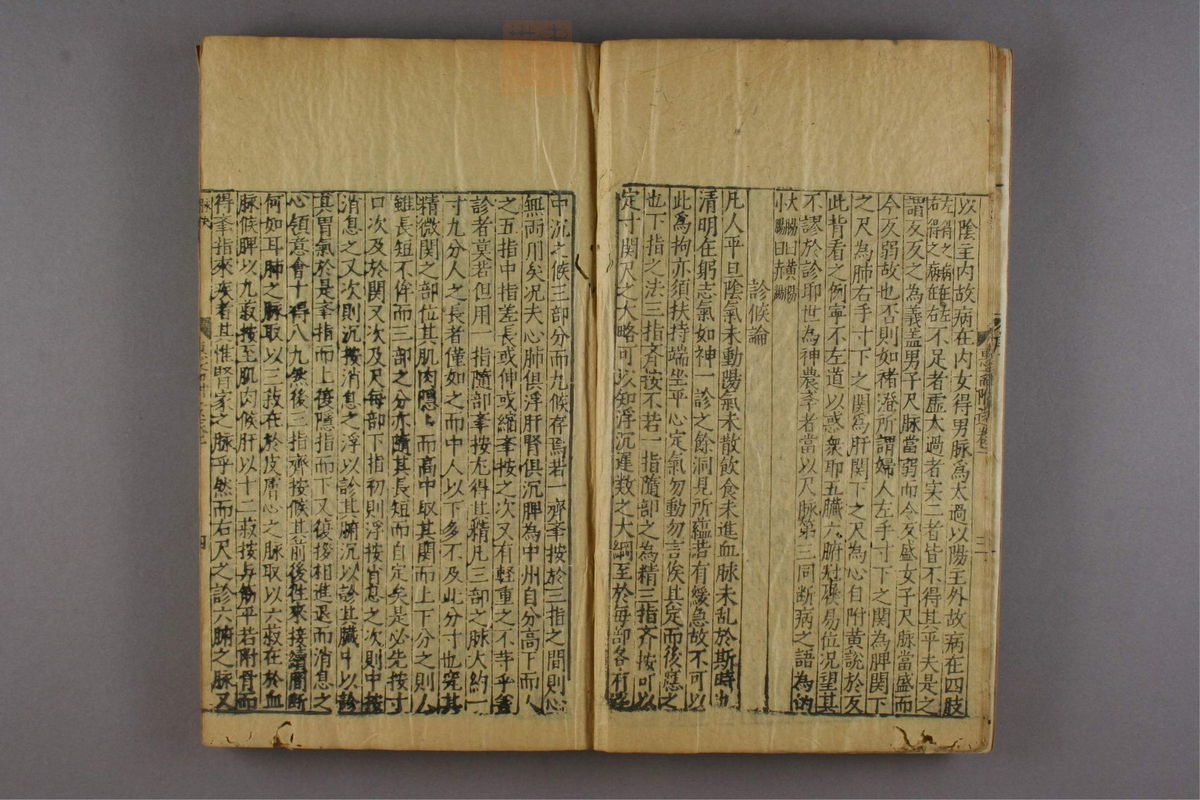 以陰主内故病在内女得男脉為太過以陽主外故病在四肢
左得之病在左
右得之病在右
不足者虚太過者实二者皆不得其平夫是之
謂反反之為義盖男子尺脉當弱而今反盛女子尺脉當盛而
今反弱故也否則如褚澄所謂婦人左手寸下之関為脾関下
之尺為肺右手寸下之関為肝関下之尺為心自附黄說於反
此背看之例寧不左道以惑衆耶五臓六腑易位况望其
不謬於診耶世為神農孝者當以尺脉第三同断病之語為的
大腸曰黄腸
小腸曰赤腸
診候論
凡人平旦陰氣未動陽氣未散飲食未進血脉未乱於斯時也
清明在躬志氣如神一診之餘洞見所蘊若有緩急故不可以
此為拘亦須扶持端坐平心定氣勿動勿言俟其定而後應之
也下指之法三指齐按不若一指隨部之為精三指齐按可以
定寸関尺之大略可以知浮沉遲数之大綱至於每部各有浮
中沉之候三部分而九候存焉若一齊挙按於三指之間則心
無兩用矣况夫心肺俱浮肝腎俱沉脾為中州自分高下而人
之五指中指差長或伸或縮挙按之次又有軽重之不等乎盖
診者莫若但用一指隨部挙按尤得其精凡三部之脉大約一
寸九分人之長者僅如之而中人以下多不及此分寸也究其
精微関之部位其肌肉隱隱而高中取其関而上下分之則人
雖長短不侔而三部之分亦隨其長短而自定矣是必先按寸
口次及於関又次及尺每部下指初則浮按消息之次則中按
消息之又次則沉按消息之浮以診其腑沉以診其臓中以診
真胃氣於是挙指而上復隱指而下又復後相進退而消息之
心領意會十得八九然後三指齊按候其前後往來接續間断
何如耳肺之脉取以三菽在於皮膚心之脉取以六菽在於血
脉候脾以九菽按至肌肉候肝以十二菽按与筋平若附骨而
得挙指來疾者其惟腎家之脉乎然而右尺之診六腑之脉又